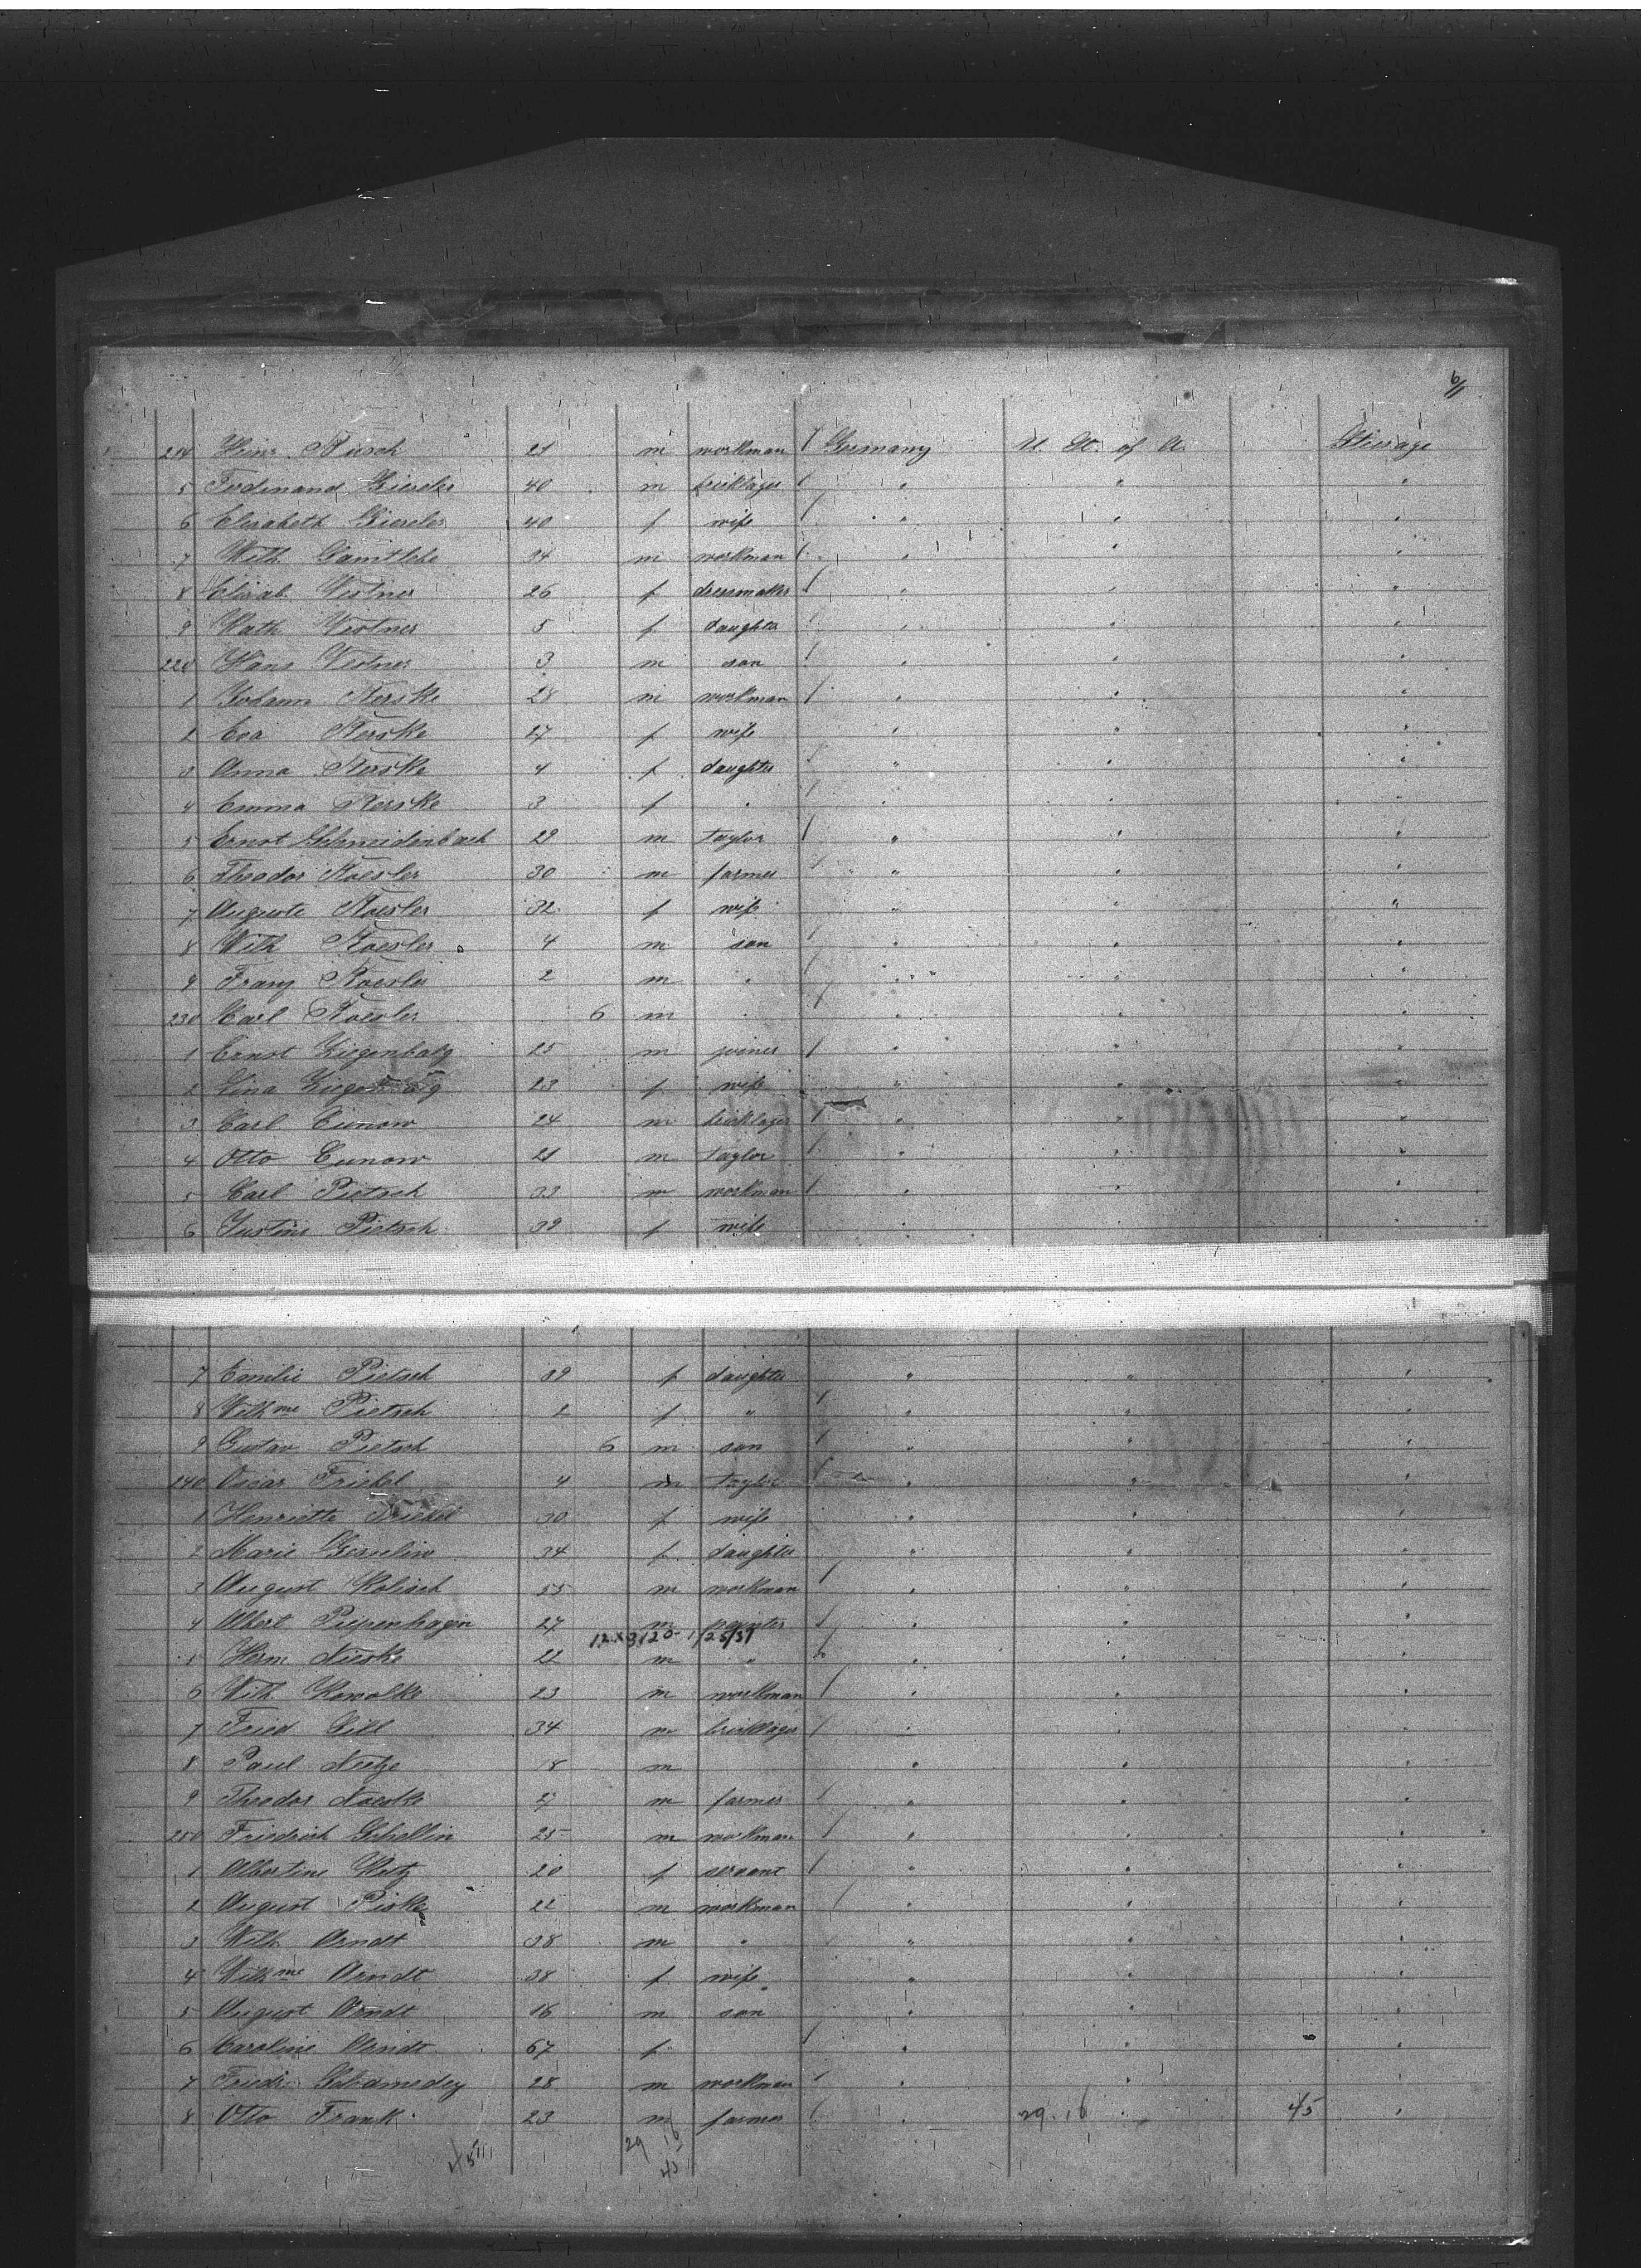 6/
214 Heinr. Rusch 21 m workman Germany U. St. of A. Steerage
5 Ferdinand Gieseler 40 m bricklayer " " "
6 Elisabeth Gieseler 40 f wife " " "
7 Wilh. 34 m workman " " "
8 Elisab. Vestner 26 f dressmaker " " "
9 Kath Vestner 5 f daughter " " "
220 Hans Vestner 3 m son " " "
1 Johann Kerske 28 m workman " " "
2 Eva Kerske 27 f wife " " "
3 Anna Kerske 4 f daughter " " "
4 Emma Kerske 3 f " " " "
5 Ernst Schmidenbach 29 m taylor " " "
6 Theodor Koesler 30 m farmer " " "
7 Auguste Koesler 32 f wife " " "
8 Wilh Koesler 4 m son " " "
9 Franz Koesler 2 m " " " "
230 Carl Koesler 6 m " " " "
1 Ernst Ziegenbalg 25 m joiner " " "
2 Lina Ziegenbalg 23 f wife " " "
3 Carl Cunow 24 m bricklayer " " "
4 Otto Cunow 21 m taylor " " "
5 Carl Pietsch 33 m workman " " "
6 Justine Pietsch 39 f wife " " "
7 Emilie Pietsch 39 f daughter " " "
8 Wilhme Pietsch 2 f " " " "
9 Gustav Pietsch 6 m son " " "
240 Oscar Friebel 4 m taylor " " "
1 Henriette Friebel 30 f wife " " "
2 Marie 34 f daughter " " "
3 August Kolisch 55 m workman " " "
4 Albert Piepenhagen 27 m painter " " "
12x3120-1/25/51
Herm. Nieske 22 m " " " "
6 Wilh Kowalke 23 m workman " " "
7 Fried Gill 34 m bricklayer " " "
8 Paul Nietze 18 m " " "
9 Theodor Noeske 27 m farmer " " "
250 Friedrich Schellin 25 m workman " " "
1 Albertine Kietz 20 f servant " " "
2 August Piske 22 m workman " " "
3 Wilh Arndt 38 m " " " "
4 Wilhme Arndt 38 f wife " " "
5 August Arndt 16 m son " " "
6 Caroline Arndt 67 f " " "
7 Friedr. 28 m workman " " "
8 Otto Frank 23 m farmer " 29.16 45 "
29 16
45